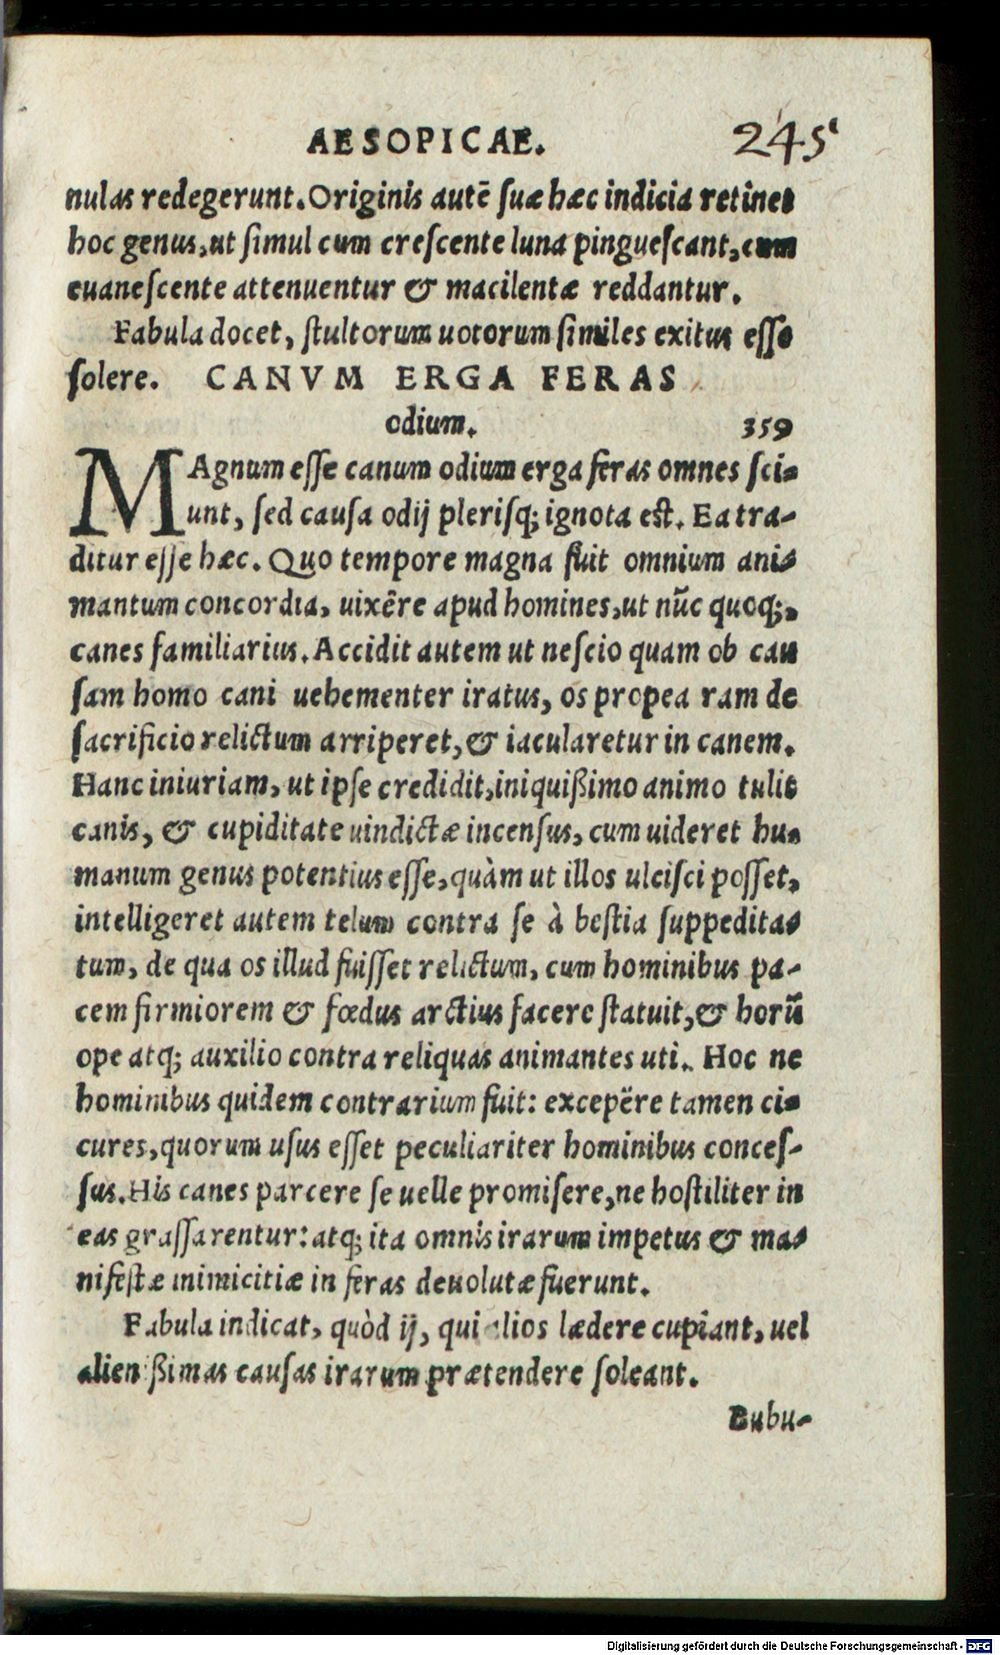 AESOPICAE. 245
nulas redegerunt. Originis autē suæ hæc indicia retinet
hoc genus, ut simul cum crescente luna pinguescant, cum
euanescente attenuentur & macilentæ reddantur.
Fabula docet, stultorum uotorum similes exitus esse
solere. CANVM ERGA FERAS
odium. 359
MAgnum esse canum odium erga feras omnes sci-
unt, sed causa odij plerisq; ignota est. Ea tra-
ditur esse hæc. Quo tempore magna fuit omnium ani-
mantum concordia, uixêre apud homines, ut nūc quoq;,
canes familiarius. Accidit autem ut nescio quam ob cau
sam homo cani uehementer iratus, os propea ram de
sacrificio relictum arriperet, & iacularetur in canem.
Hanc iniuriam, ut ipse credidit, iniquißimo animo tulit
canis, & cupiditate uindictæ incensus, cum uideret hu-
manum genus potentius esse, quàm ut illos ulcisci posset,
intelligeret autem telum contra se à bestia suppedita-
tum, de qua os illud fuisset relictum, cum hominibus pa-
cem firmiorem & fœdus arctius facere statuit, & horū
ope atq; auxilio contra reliquas animantes uti. Hoc ne
hominibus quidem contrarium fuit: excepëre tamen ci-
cures, quorum usus esset peculiariter hominibus conces-
sus. His canes parcere se uelle promisere, ne hostiliter in
eas grassarentur: atq; ita omnis irarum impetus & ma-
nifestæ inimicitiæ in feras deuolutæ fuerunt.
Fabula indicat, quòd ij, qui alios lædere cupiant, uel
alienißimas causas irarum prætendere soleant.
Bubu-
Digitalisierung gefördert durch die Deutsche Forschungsgemeinschaft - DFG